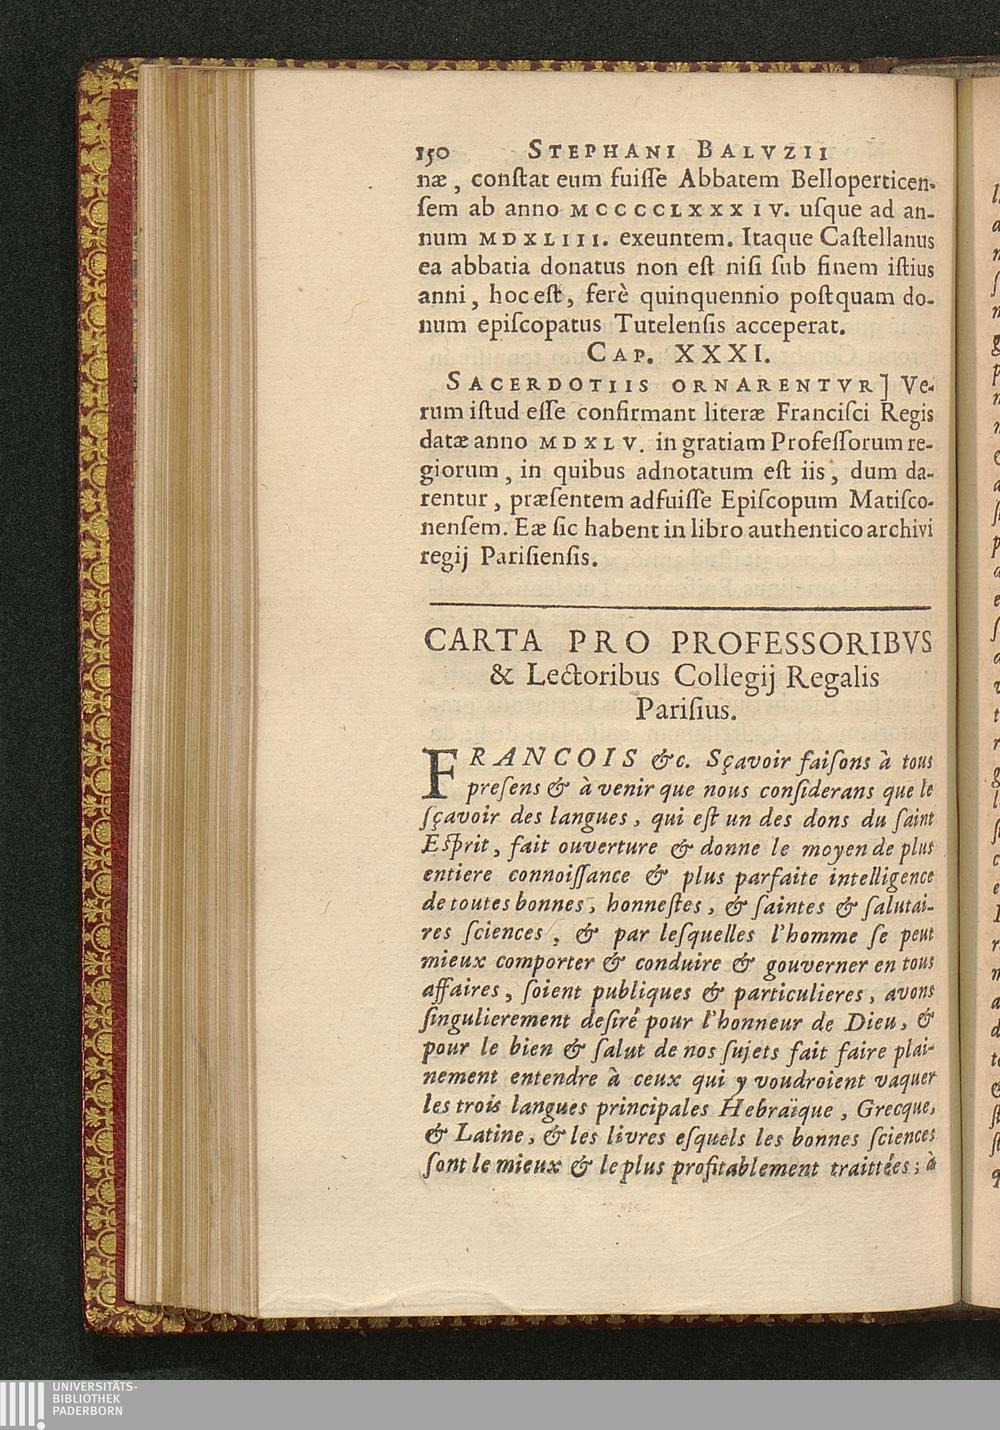 150 STEPHANI BALVZII
næ, conſtat eum fuiſſe Abbatem Belloperticen-
ſem ab anno MCCCCLXXXIV. uſque ad an-
num MDXLIII. exeuntem. Itaque Caſtellanus
ea abbatia donatus non eſt niſi ſub finem iſtius
anni, hoc eſt, ferè quinquennio poſtquam do-
num epiſcopatus Tutelenſis acceperat.
CAP. XXXI.
SACERDOTIIS ORNARENTVR] Ve-
rum iſtud eſſe confirmant literæ Franciſci Regis
datæ anno MDXLV. in gratiam Profeſſorum re-
giorum, in quibus adnotatum eſt iis, dum da-
rentur, præſentem adfuiſſe Epiſcopum Matiſco-
nenſem. Eæ ſic habent in libro authentico archivi
regij Pariſienſis.
CARTA PRO PROFESSORIBVS
& Lectoribus Collegij Regalis
Pariſius.
FRANCOIS &c. Sçavoir faiſons à tous
preſens & à venir que nous conſiderans que le
ſçavoir des langues, qui eſt un des dons du ſaint
Eſprit, fait ouverture & donne le moyen de plus
entiere connoiſſance & plus parfaite intelligence
de toutes bonnes, honneſtes, & ſaintes & ſalutai-
res ſciences, & par leſquelles l'homme ſe peut
mieux comporter & conduire & gouverner en tous
affaires, ſoient publiques & particulieres, avons
ſingulierement deſiré pour l'honneur de Dieu, &
pour le bien & ſalut de nos ſujets fait faire plai-
nement entendre à ceux qui y voudroient vaquer
les trois langues principales Hebraïque, Grecque,
& Latine, & les livres eſquels les bonnes ſciences
ſont le mieux & le plus profitablement traittées; à
UNIVERSITÄTS-
BIBLIOTHEK
PADERBORN